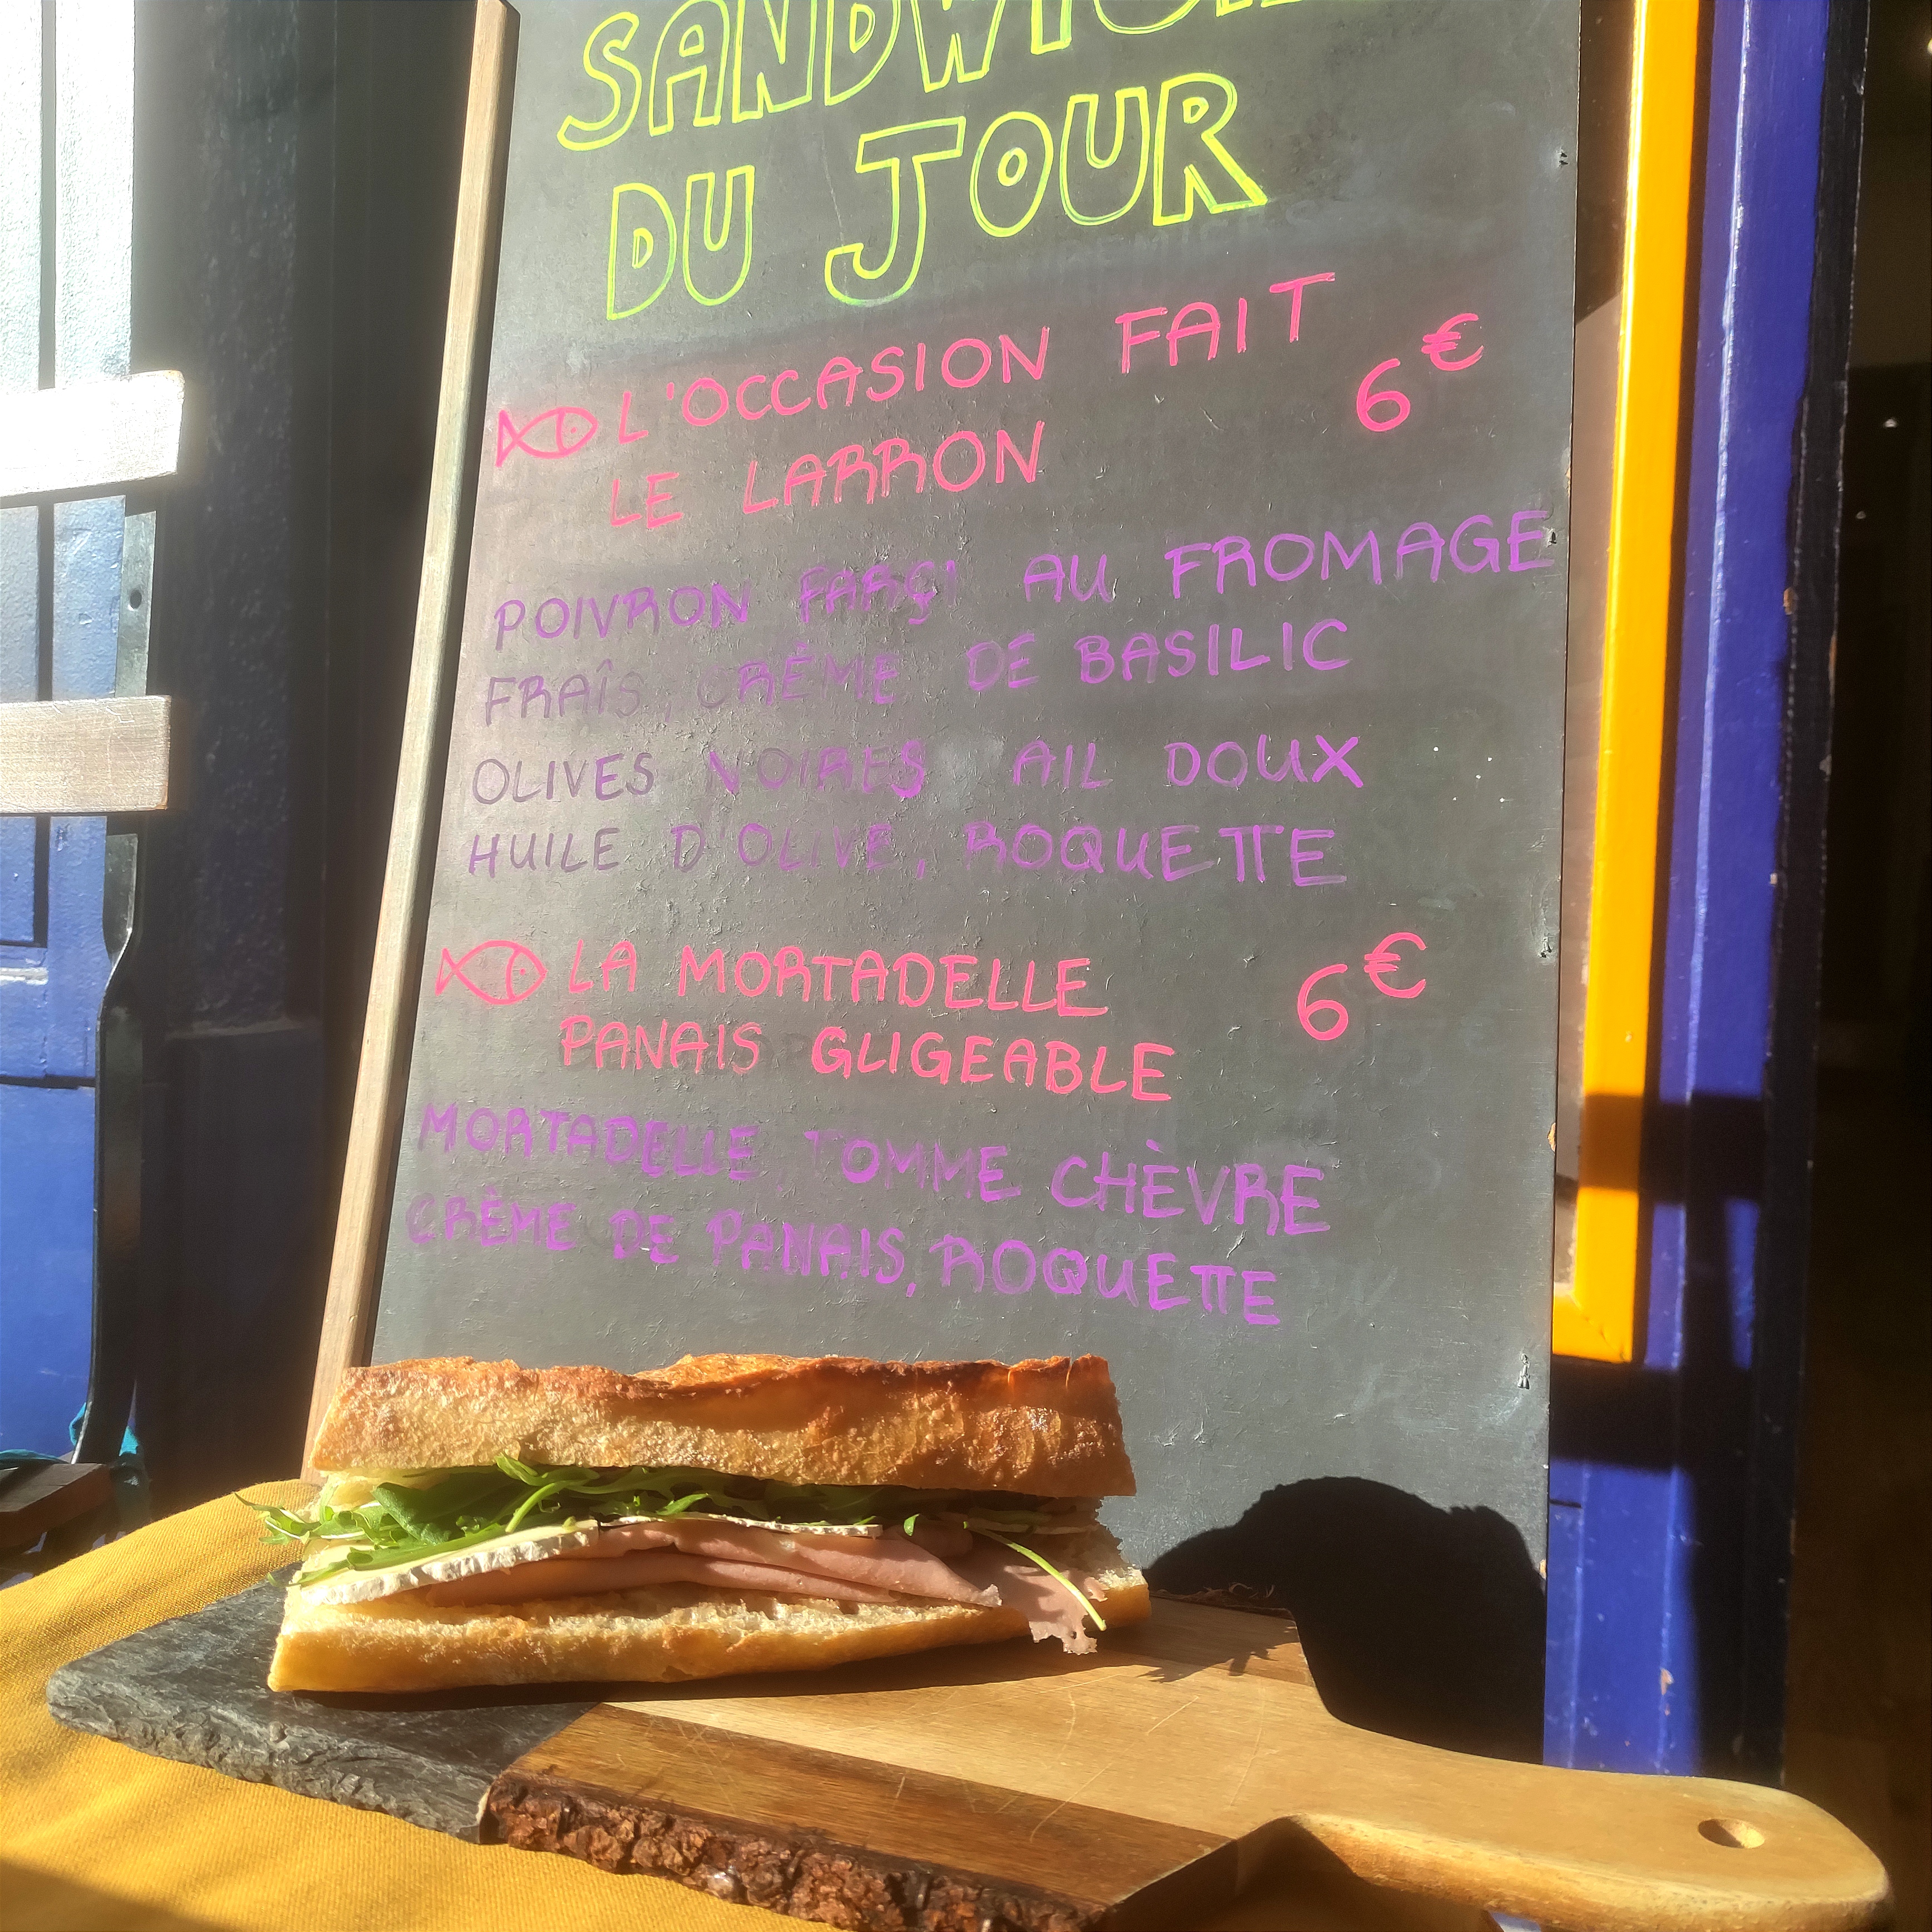 SANDWICH
DU JOUR
L'OCCASION FAIT
LE LARRON
6€
POIVRON FARÇI AU FROMAGE
FRAÎS, CRÊME DE BASILIC
OLIVES NOIRES AIL DOUX
HUILE D'OLIVE, ROQUETTE
LA MORTADELLE
PANAIS GLIGEABLE
6€
MORTADELLE, TOMME CHÈVRE
CRÈME DE PANAIS, ROQUETTE